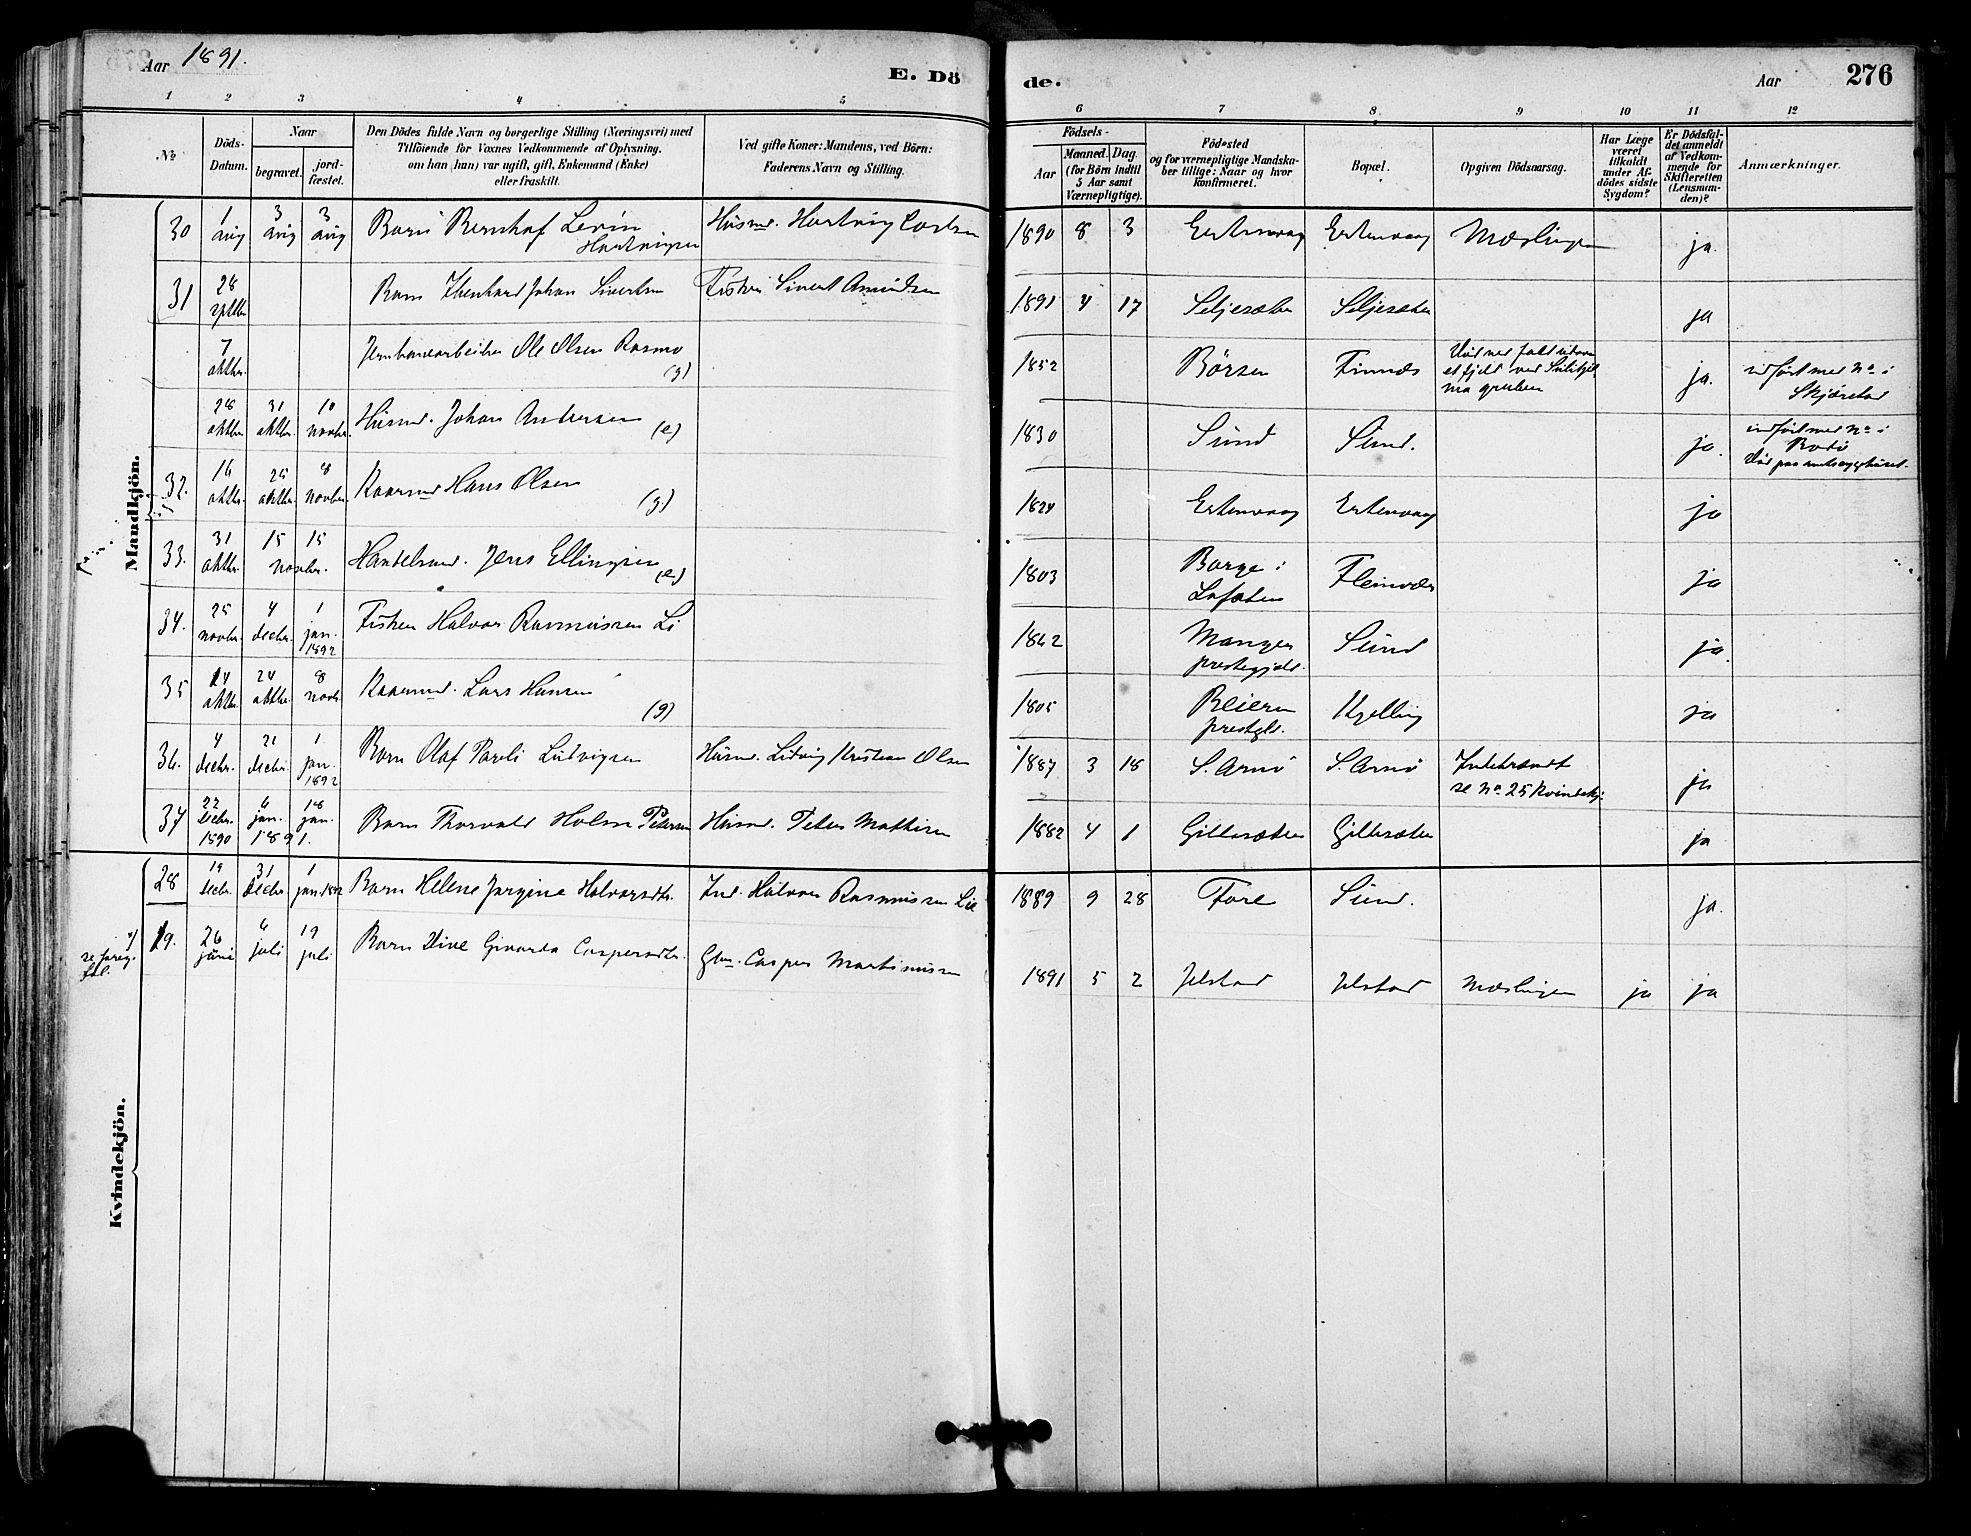 Aar 1891.
E. Dö
de.
Aar
276
1 2 3 4 5 6 7 8 9 10 11 12
No
Döds-Datum.
Naar
begravet.
jord-fæstet.
Den Dödes fulde Navn og borgerlige Stilling (Næringsvei) med
Tilföiende for Voxnes Vedkommende af Oplysning,
om han (hun) var ugift, gift, Enkemand (Enke)
eller fraskilt.
Ved gifte Koner: Mandens, ved Börn:
Faderens Navn og Stilling.
Födsels-
Aar
Maaned. Dag.
(for Börn indtil
5 Aar samt
Værnepligtige).
Födested
og for værnepligtige Mandska-
ber tillige: Naar og hvor
konfirmeret.
Bopæl.
Opgiven Dödsaarsag.
Har Læge
været
tilkaldt
under Af-
dödes sidste
Sygdom?
Er Dödsfal-
det anmeldt
af Vedkom-
mende for
Skifteretten
(Lensman-
den)?
Anmærkninger.
Mandkjön.
30 1 aug 3 aug 3 aug Barn Bernhof Levin Hartvigsen Husmd. Hartvig 1890 8 3 Estenvaag Estenvaag Mæslinger ja.
31 28 Barn Johan Sivertsen Fisker Sivert Amundsen 1891 4 17 Seljesæter Seljesæter ja
7 oktbr. Jernbanearbeider Ole Olsen Rasmo (g) 1852 Börsen Finnæs Död ved fald udover et fjeld ved Sulitjelma gruber ja. indfört med No i Skjerstad
28 oktbr. 31 oktbr. 10 novbr. Husmd. Johan Andersen (e) 1830 Sund Sund. ja. indfört med No i Bodö Död paa amtssygehuset.
32. 16 oktbr. 25 oktbr. 8 novbr. Kaarmd Hans Olsen (g.) 1824 Estenvaag Estenvaag ja
33. 31 oktbr. 15 15 novbr. Handelsmd. Jens Ellingsen (e) 1803 Borge i Lofoten Fleinvær ja
34. 25 novbr. 4 decbr. 1 jan. 1892 Fisker Halvor Rasmussen Li 1862 Manger prestegjeld. Sund ja.
35 14 oktbr. 24 oktbr. 8 novb. Kaarmd. Lars Hansen (g) 1805 Beiern prestgld. Kjelling ja
36. 4 decbr. 21 decbr. 1 jan. 1892 Barn Olaf Pareli Ludvigsen Husmd. Ludvig Kristian Olsen 1887 3 18 S. Arnö S. Arnö Indebrændt se No 25 Kvindekj. ja
37 22 decbr. 1890 6 jan. 18 jan. 1891. Barn Thorvald Holm Petersen Husmd. Peter Mathisen 1882 4 1 Gillesæter Gillesæter ja
Kvindekjön.
28 19 decbr. 31 decbr. 1 jan 1892 Barn Helene Jørgine Halvorsdtr. Ind. Halvor Rasmussen Lie 1889 9 28 Fore Sund. ja.
29. 26 juni 6 juli 19 juli Barn Givarda Caspersdtr. Gbr. Casper Martinussen 1891 5 2 Jelstad Jelstad Mæslinger ja ja